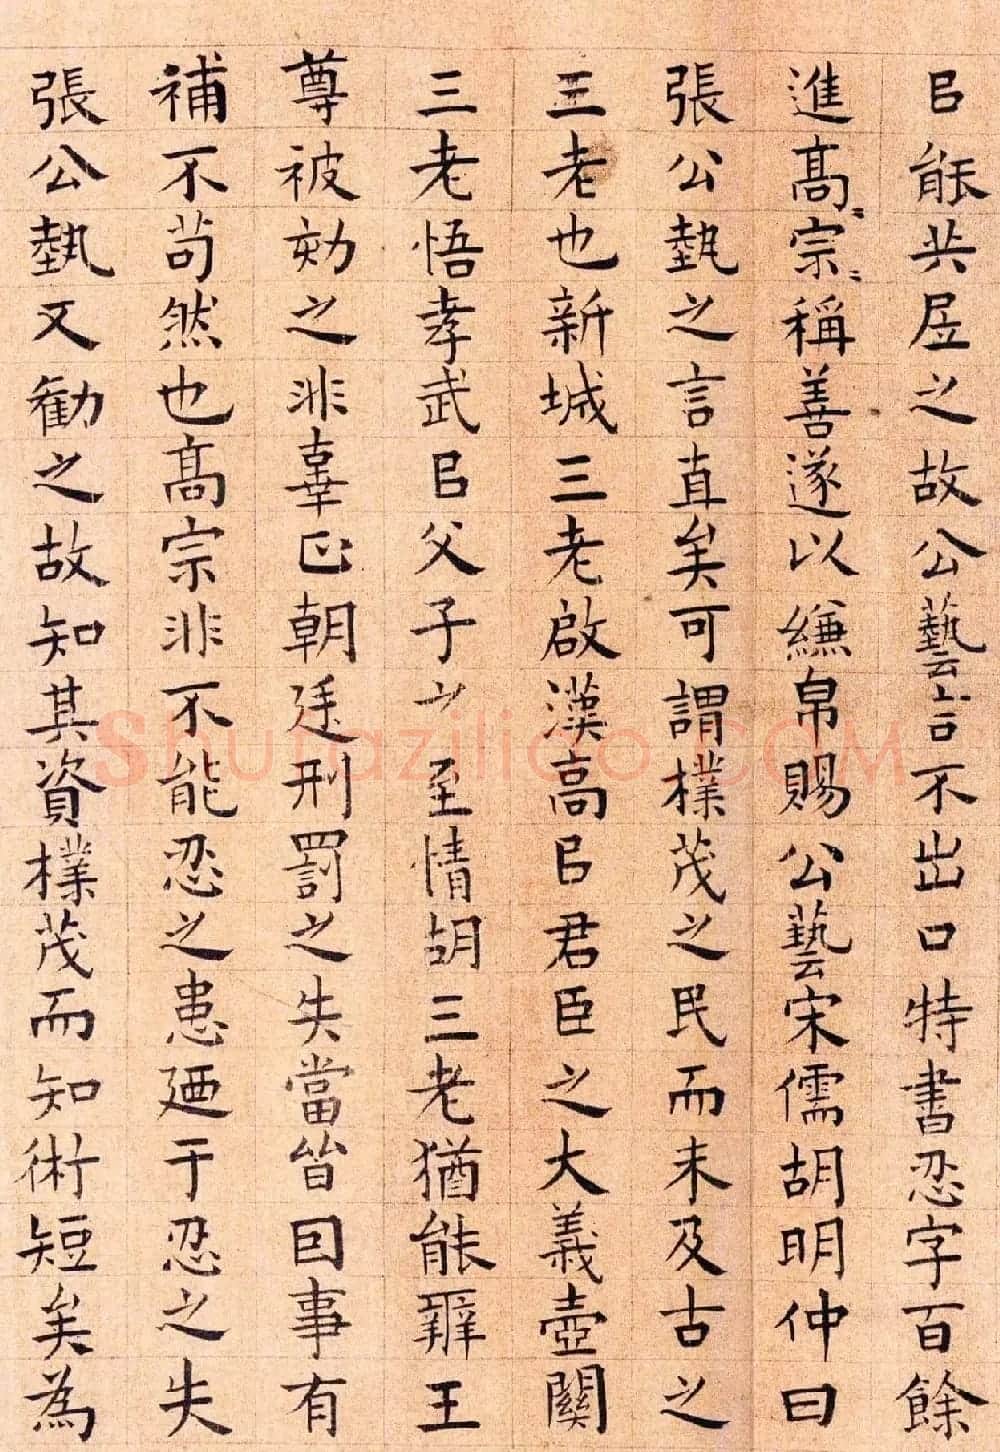 㠯能共居之故公藝言不出口特書忍字百餘
進髙宗髙宗稱善遂以縑帛賜公藝宋儒胡明仲曰
張公埶之言直矣可謂樸茂之民而未及古之
三老也新城三老啟漢高㠯君臣之大義壺關
三老悟孝武㠯父子之至情胡三老猶能辯王
尊被劾之非辜正朝廷刑罰之失當皆因事有
補不茍然也髙宗非不能忍之患廼于忍之失
張公埶又勸之故知其資樸茂而知術短矣為
shufaziliao.COM